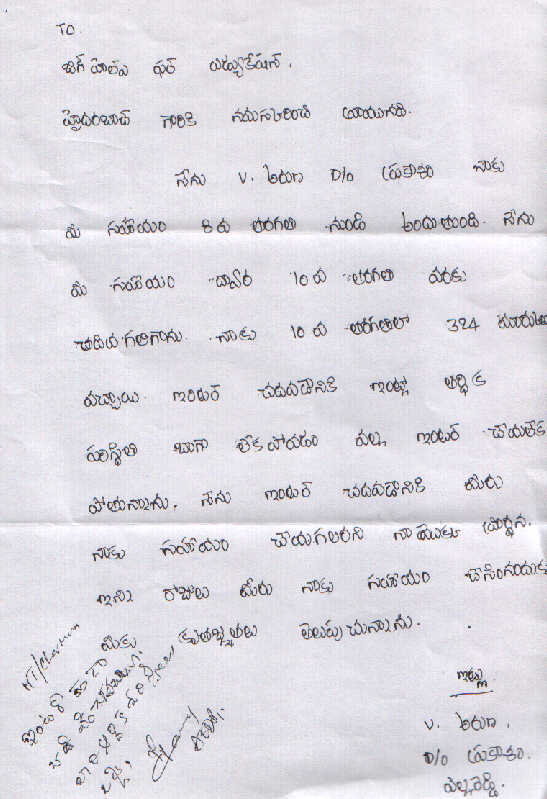 TO
బిగ్ హెల్ప్ ఫర్ ఎడ్యుకేషన్.
హైదరాబాద్ గారికి నమస్కరించి వ్రాయునది.
నేను V. అరుణ D/o ప్రకాశం నాకు
మీ సహాయం 8వ తరగతి నుండి అందుతుంది. నేను
మీ సహాయం ద్వారా 10వ తరగతి వరకు
చదివ గలిగాను. నాకు 10వ తరగతిలో 324 మార్కులు
వచ్చాయి. ఇంటర్ చదవడానికి ఇంట్లో ఆర్థిక
పరిస్థితి బాగా లేక పోవడం వల్ల ఇంటర్ చేయలేక
పోతున్నాను. నేను ఇంటర్ చదవడానికి మీరు
నాకు సహాయం చేయగలరని నా యొక్క ప్రార్థన.
ఇన్ని రోజులు మీరు నాకు సహాయం చేసినందుకు
మీకు కృతజ్ఞతలు తెలుపు చున్నాను.
ఇట్లు
V. అరుణ.
D/o ప్రకాశం